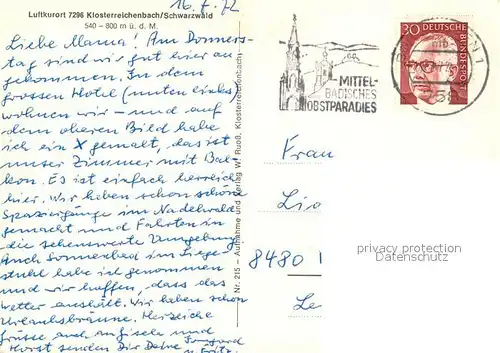 16. 7. 72
Luftkurort 7296 Klosterreichenbach/Schwarzwald
540 – 800 m ü. d. M.
Liebe Mama! Am Donners-
tag sind wir gut hier an-
gekommen. In dem
grossen Hotel (unten links)
wohnen wir – und auf
dem oberen Bild habe
ich ein X gemalt, das ist
unser Zimmer mit Bal-
kon. Es ist einfach herrlich
hier. Wir haben schon schöne
Spaziergänge im Nadelwald
gemacht und Fahrten in
die sehenswerte Umgebung.
Auch Sonnenbad im Liege-
stuhl habe ich genommen
und wir hoffen, dass das
Wetter aushält. Wir haben schon
Urlaubsbräune. Herzliche
Grüsse auch an Gisela und
Horst senden Dir Deine Irmgard
u. Fritz.
Nr. 215 – Aufnahme und Verlag W. Rueß, Klosterreichenbach
MITTEL-
BADISCHES
OBSTPARADIES
30
DEUTSCHE
BUNDESPOST
1
Frau
Lio
8480
privacy protection
Datenschutz
Le